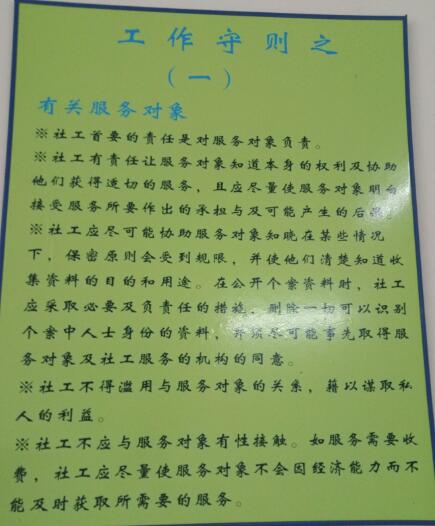 工作守则之
（一）
有关服务对象
※社工首要的责任是对服务对象负责。
※社工有责任让服务对象知道本身的权利及协助
他们获得适切的服务，且应尽量使服务对象明白
接受服务所要作出的承担与及可能产生的后果。
※社工应尽可能协助服务对象知晓在某些情况
下，保密原则会受到规限，并使他们清楚知道收
集资料的目的和用途。在公开个案资料时，社工
应采取必要及负责任的措施，删除一切可以识别
个案中人士身份的资料，并须尽可能事先取得服
务对象及社工服务的机构的同意。
※社工不得滥用与服务对象的关系，藉以谋取私
人的利益。
※社工不应与服务对象有性接触。如服务需要收
费，社工应尽量使服务对象不会因经济能力而不
能及时获取所需要的服务。